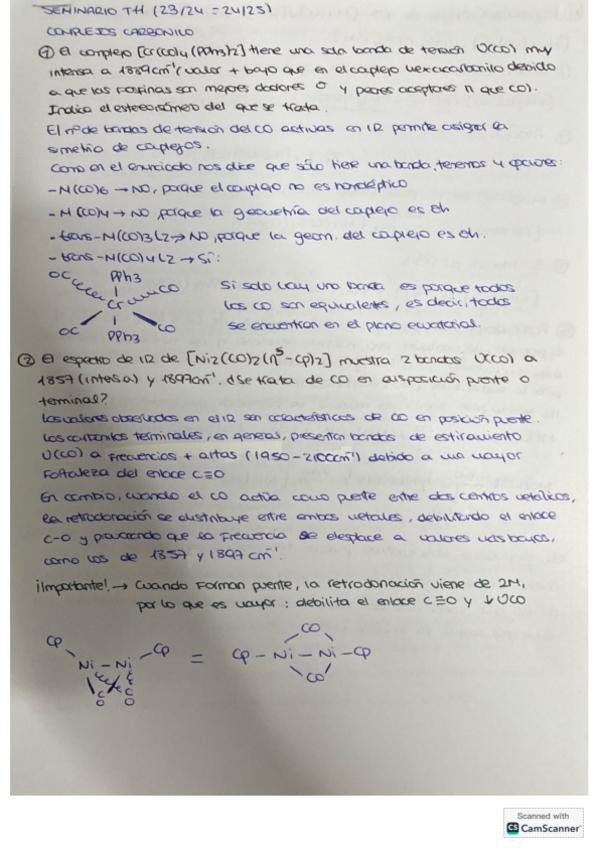 SEMINARIO T4 (23/24 = 24/25)
COMPLEJOS CARBONILO
① El complejo [Cr(CO)4(PPh3)2] tiene una sola banda de tensión ν(CO) muy
intensa a 1889cm⁻¹ (valor + bajo que en el complejo hexacarbonilo debido
a que las fosfinas son mejores dadores σ y peores aceptores π que CO).
Indica el estereoisómero del que se trata.
El nº de bandas de tensión del CO activas en IR permite asignar la
simetría de complejos.
Como en el enunciado nos dice que sólo tiene una banda, tenemos 4 opciones:
- M(CO)6 → NO, porque el complejo no es homoléptico
- M(CO)4 → NO porque la geometría del complejo es Oh
- trans-M(CO)3L2 → NO, porque la geom. del complejo es Oh.
- trans-M(CO)4L2 → Sí:
OC PPh3 CO
Cr
OC PPh3 CO
Si solo hay una banda es porque todos
los CO son equivalentes, es decir, todos
se encuentran en el plano ecuatorial.
② El espectro de IR de [Ni2(CO)2(η⁵-Cp)2] muestra 2 bandas ν(CO) a
1857 (intensa) y 1897cm⁻¹. ¿Se trata de CO en disposición puente o
terminal?
Los valores observados en el IR son característicos de CO en posición puente.
Los carbonilos terminales, en general, presentan bandas de estiramiento
ν(CO) a frecuencias + altas (1950-2100cm⁻¹) debido a una mayor
fortaleza del enlace C≡O
En cambio, cuando el CO actúa como puente entre dos centros metálicos,
la retrodonación se distribuye entre ambos metales, debilitando el enlace
C-O y provocando que la frecuencia se desplace a valores más bajos,
como los de 1857 y 1897 cm⁻¹.
¡Importante! → Cuando forman puente, la retrodonación viene de 2M,
por lo que es mayor: debilita el enlace C≡O y ↓ νCO
Cp Cp
Ni - Ni
C C
O O
=
CO
Cp - Ni - Ni - Cp
CO
Scanned with
CS CamScanner